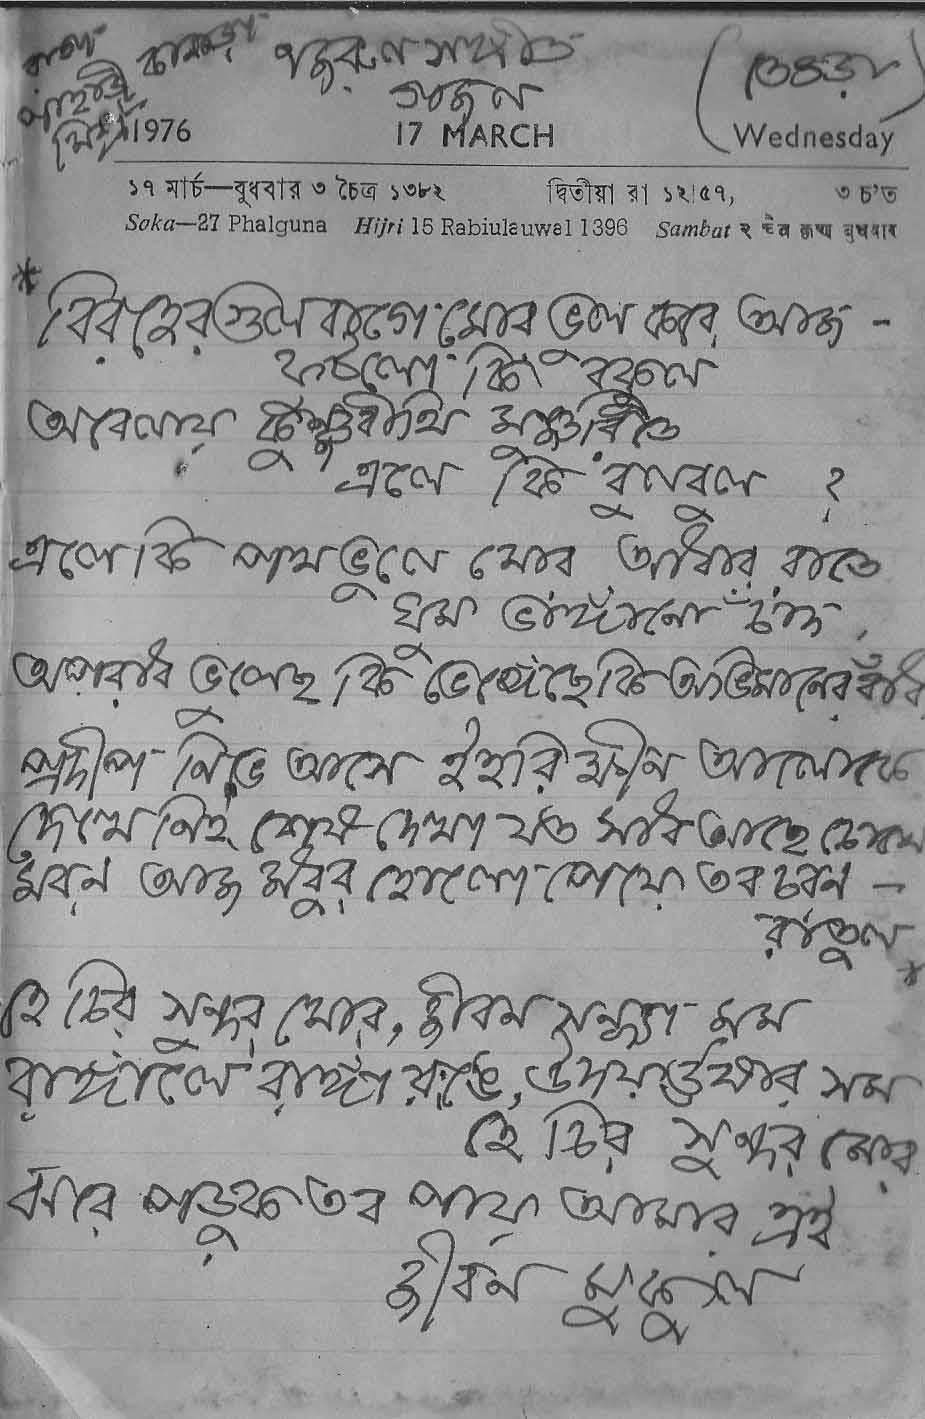 রাগ পাহাড়ী মিশ্র
নজরুল সঙ্গীত
গজল
(তেওড়া)
1976 17 MARCH Wednesday
১৭ মার্চ—বুধবার ৩ চৈত্র ১৩৮২ দ্বিতীয়া রা ১২।৫৭, ৩ চ'ত
Soka—27 Phalguna Hijri 15 Rabiulauwal 1396 Sambat २ चैत्र कृष्ण बुधवार
* বিরহের গুলবাগে মোর ভুল করে আজ -
ফুটলো কি বকুল
অবেলায় কুঞ্জবীথি মুঞ্জরিতে
এলে কি বুলবুল ?
এলে কি পথ ভুলে মোর আঁধার রাতে
ঘুম ভাঙ্গানো চাঁদ,
অপরাধ ভুলেছ কি ভেঙ্গেছে কি অভিমানের বাঁধ
প্রদীপ নিভে আসে ইহারি ক্ষীণ আলোকে
দেখে নিই শেষ দেখা যত সাধ আছে চোখে
মরণ আজ মধুর হোলো পেয়ে তব চরণ -
রাতুল
হে চির সুন্দর মোর, জীবন সন্ধ্যা মম
রাঙ্গালে রাঙ্গা রঙে, উদয় ঊষার সম
হে চির সুন্দর মোর
ঝরে পড়ুক তব পায়ে আমার এই
জীবন মুকুল